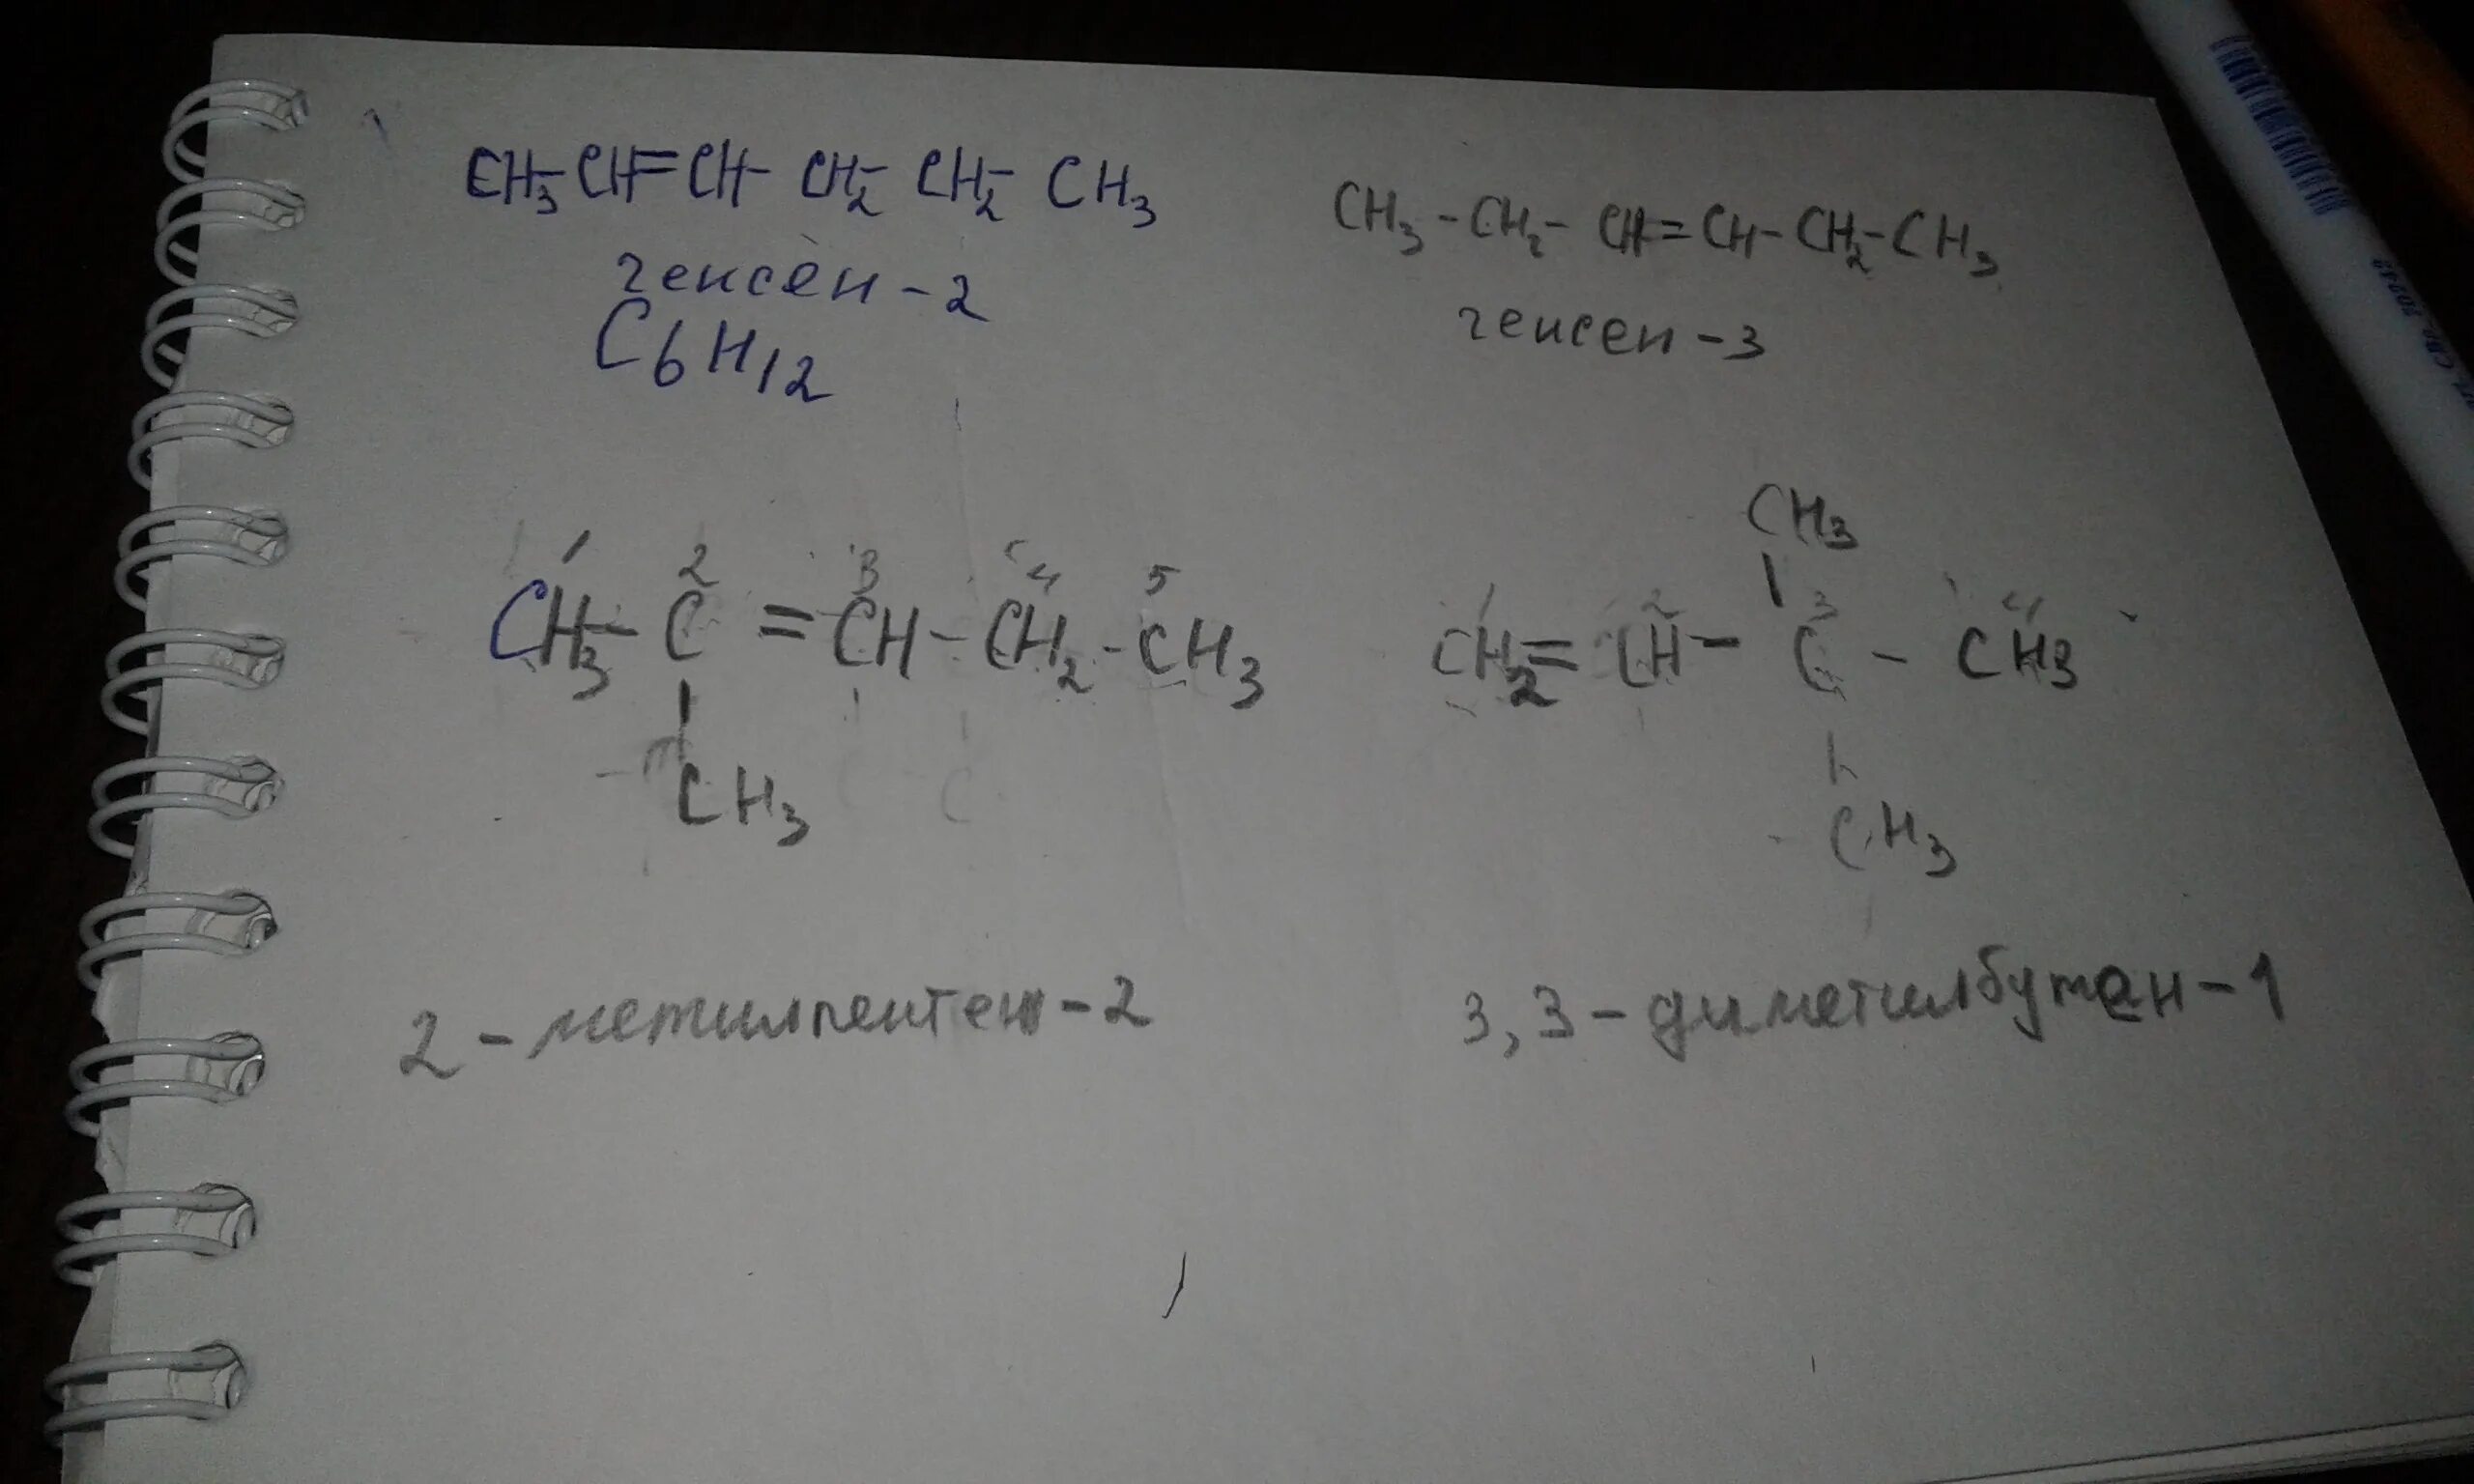 CH3-CH=CH-CH2-CH2-CH3
гексен-2
C6H12
CH3-CH2-CH=CH-CH2-CH3
гексен-3
1 2 3 4 5
CH3-C=CH-CH2-CH3
CH3
2-метилпентен-2
CH3
1 2 3 4
CH2=CH-C-CH3
CH3
3,3-диметилбутен-1